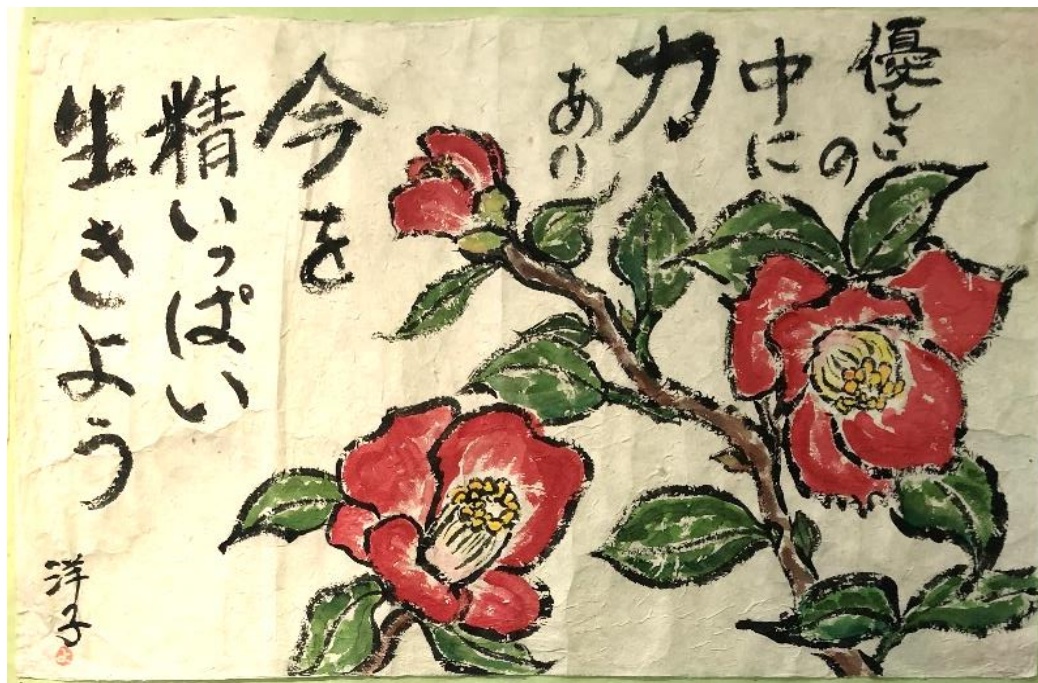 優しさ
の
中に
力
あり
今を
精いっぱい
生きよう
洋子
よ